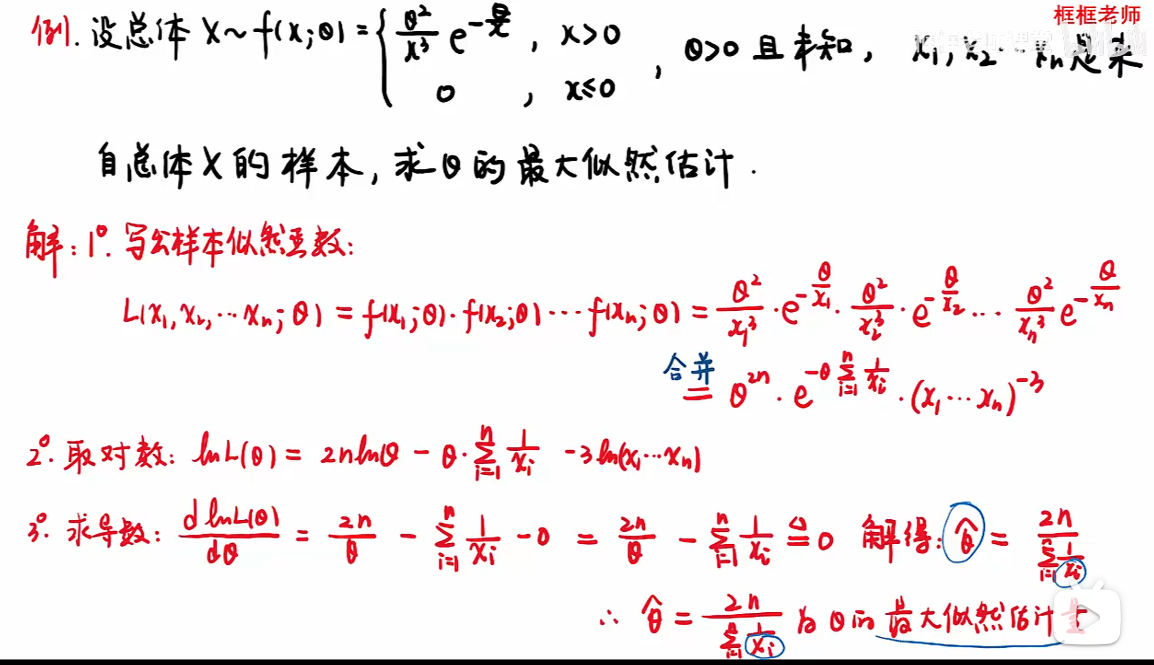 框框老师
例. 设总体 X~f(x;θ) = { θ²/x³ e^(-θ/x), x>0 ; 0, x≤0 , θ>0 且未知, x₁,x₂…xₙ是来
自总体X的样本,求θ的最大似然估计.
解:1°. 写出样本似然函数:
L(x₁,x₂,…xₙ;θ) = f(x₁;θ)·f(x₂;θ)…f(xₙ;θ) = θ²/x₁³·e^(-θ/x₁)·θ²/x₂³·e^(-θ/x₂)…θ²/xₙ³ e^(-θ/xₙ)
合并 = θ^(2n)·e^(-θ∑_(i=1)^n 1/xᵢ)·(x₁…xₙ)^(-3)
2°. 取对数: lnL(θ) = 2nlnθ - θ·∑_(i=1)^n 1/xᵢ -3ln(x₁…xₙ)
3°. 求导数: dlnL(θ)/dθ = 2n/θ - ∑_(i=1)^n 1/xᵢ -0 = 2n/θ - ∑_(i=1)^n 1/xᵢ ≜ 0 解得: θ̂ = 2n/(∑_(i=1)^n 1/xᵢ)
∴ θ̂ = 2n/(∑_(i=1)^n 1/xᵢ) 为θ的最大似然估计